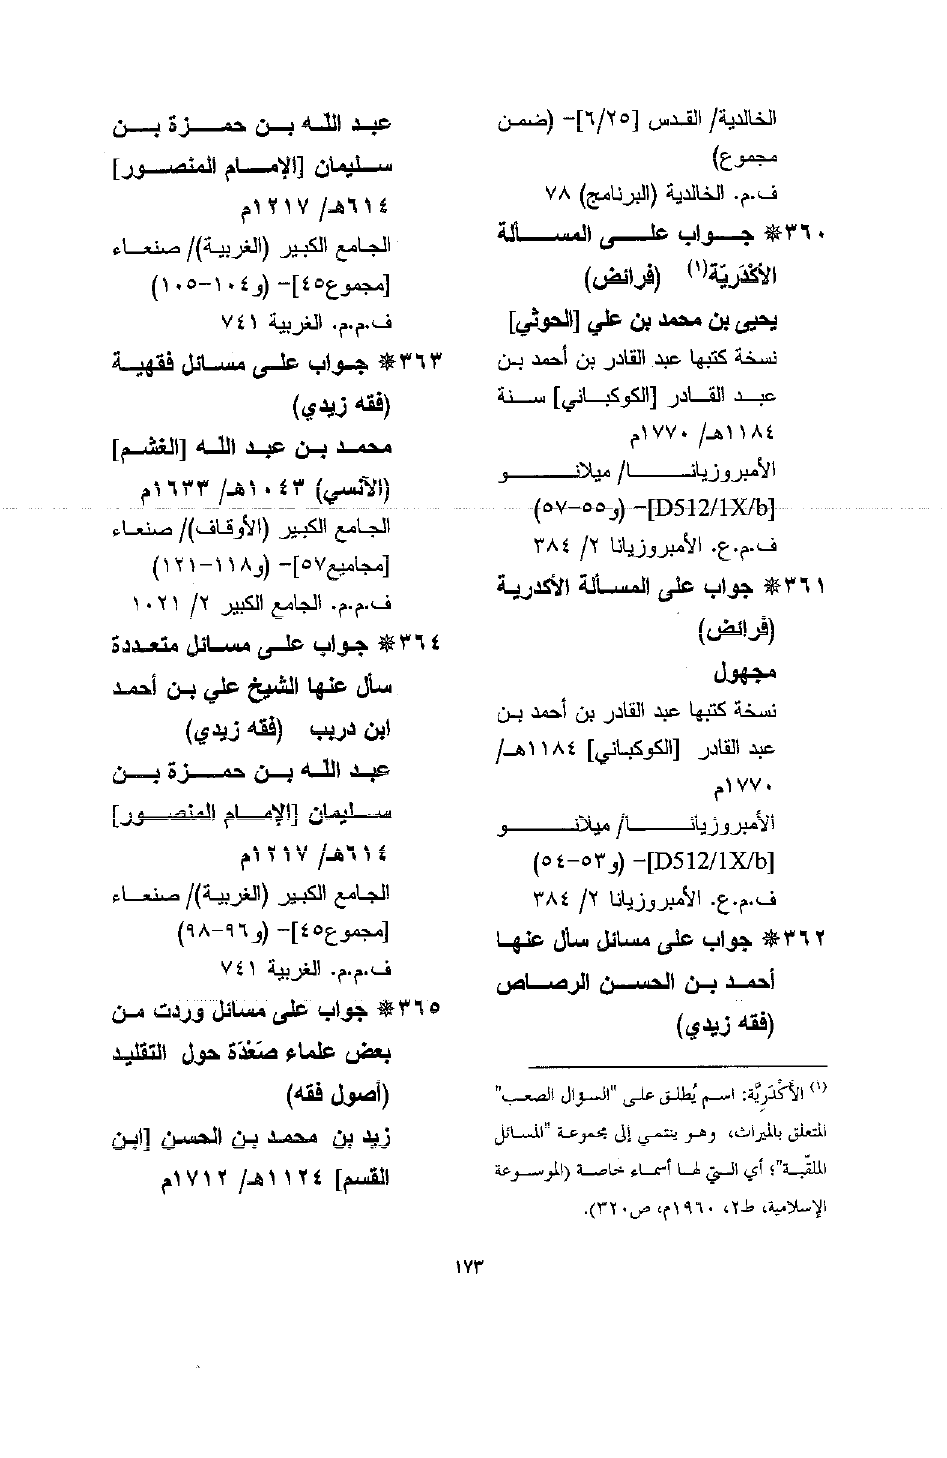 الخالدية/ القدس [٦/٢٥]- (ضمن
مجموع)
ف.م. الخالدية (البرنامج) ٧٨
٣٦٠* جواب على المسألة
الأكْدَريّة(١) (فرائض)
يحيى بن محمد بن علي [الحوثي]
نسخة كتبها عبد القادر بن أحمد بن
عبد القادر [الكوكباني] سنة
١١٨٤هـ/ ١٧٧٠م
الأمبروزيانا/ ميلانو
[D512/1X/b]- (و٥٥-٥٧)
ف.م.ع. الأمبروزيانا ٢/ ٣٨٤
٣٦١* جواب على المسألة الأكدرية
(فرائض)
مجهول
نسخة كتبها عبد القادر بن أحمد بن
عبد القادر [الكوكباني] ١١٨٤هـ/
١٧٧٠م
الأمبروزيانا/ ميلانو
[D512/1X/b]- (و٥٣-٥٤)
ف.م.ع. الأمبروزيانا ٢/ ٣٨٤
٣٦٢* جواب على مسائل سأل عنها
أحمد بن الحسن الرصاص
(فقه زيدي)
(١) الأَكْدَرِيَّة: اسم يُطلق على "السؤال الصعب"
المتعلق بالميراث، وهو ينتمي إلى مجموعة "المسائل
الملقّبة"؛ أي التي لها أسماء خاصة (الموسوعة
الإسلامية، ط٢، ١٩٦٠م، ص٣٢٠).
عبد الله بن حمزة بن
سليمان [الإمام المنصور]
٦١٤هـ/ ١٢١٧م
الجامع الكبير (الغربية)/ صنعاء
[مجموع٤٥]- (و١٠٤-١٠٥)
ف.م.م. الغربية ٧٤١
٣٦٣* جواب على مسائل فقهية
(فقه زيدي)
محمد بن عبد الله [الغشم]
(الآنسي) ١٠٤٣هـ/ ١٦٣٣م
الجامع الكبير (الأوقاف)/ صنعاء
[مجاميع٥٧]- (و١١٨-١٢١)
ف.م.م. الجامع الكبير ٢/ ١٠٢١
٣٦٤* جواب على مسائل متعددة
سأل عنها الشيخ علي بن أحمد
ابن دريب (فقه زيدي)
عبد الله بن حمزة بن
سليمان [الإمام المنصور]
٦١٤هـ/ ١٢١٧م
الجامع الكبير (الغربية)/ صنعاء
[مجموع٤٥]- (و٩٦-٩٨)
ف.م.م. الغربية ٧٤١
٣٦٥* جواب على مسائل وردت من
بعض علماء صَعْدَة حول التقليد
(أصول فقه)
زيد بن محمد بن الحسن [ابن
القسم] ١١٢٤هـ/ ١٧١٢م
١٧٣